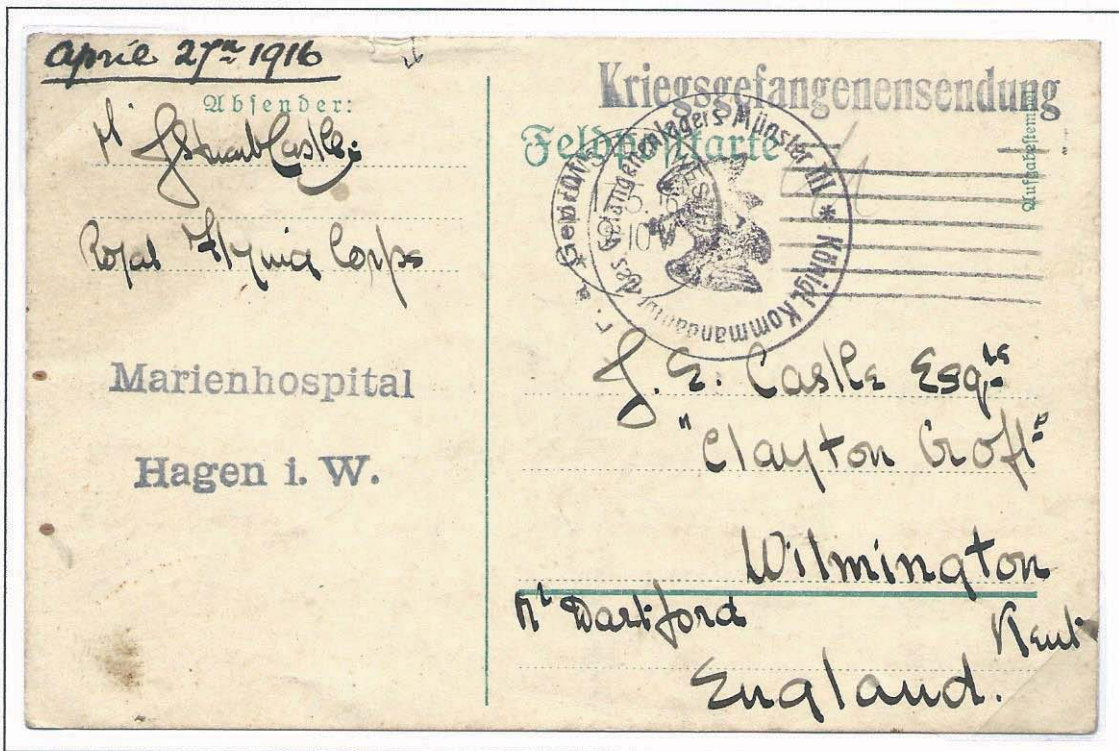 April 27th 1916
Absender:
Stuart Castle
Royal Flying Corps
Marienhospital
Hagen i. W.
Kriegsgefangenensendung
Feldpostkarte
Aufgabestempel
Geprüft
* Königl. Kommandantur des Gefangenenlagers Münster III
WESEL
J. E. Castle Esqre
"Clayton Croft"
Wilmington
Nr Dartford
Kent
England.